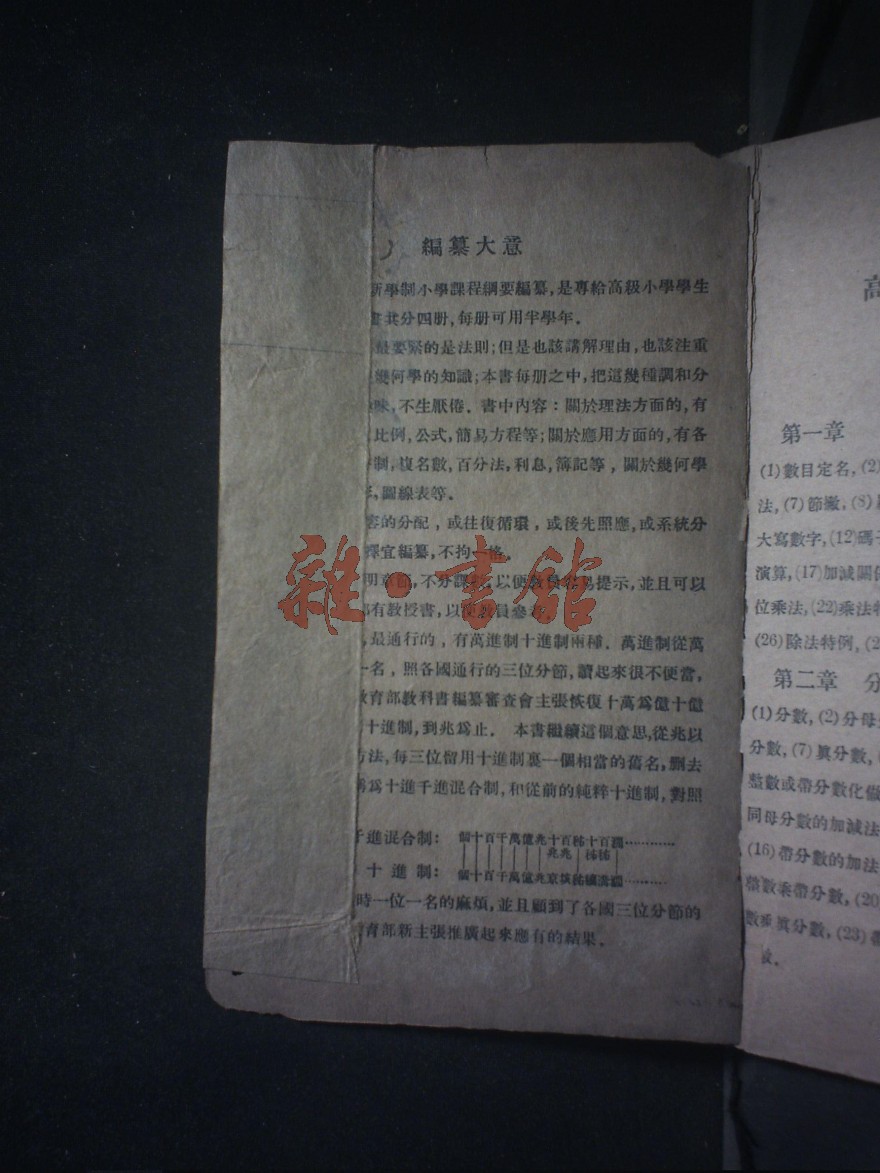 編纂大意
新學制小學課程綱要編纂,是專給高級小學學生
書共分四册,每册可用半學年.
最要緊的是法則;但是也該講解理由,也該注重
幾何學的知識;本書每册之中,把這幾種調和分
味,不生厭倦.書中內容:關於理法方面的,有
比例,公式,簡易方程等;關於應用方面的,有各
制,複名數,百分法,利息,簿記等,關於幾何學
圖線表等.
容的分配,或往復循環,或後先照應,或系統分
擇宜編纂,不拘一格.
明章節,不分課,以便教員容易提示,並且可以
都有教授書,以便教員參考.
最通行的,有萬進制十進制兩種.萬進制從萬
一名,照各國通行的三位分節,讀起來很不便當,
教育部教科書編纂審查會主張恢復十萬爲億十億
十進制,到兆爲止.本書繼續這個意思,從兆以
方法,每三位留用十進制裏一個相當的舊名,删去
爲十進千進混合制,和從前的純粹十進制,對照
千進混合制: 個十百千萬億兆十百秭十百澗…………
兆兆 秭秭
十進制: 個十百千萬億兆京垓秭穰溝澗…………
時一位一名的麻煩,並且顧到了各國三位分節的
育部新主張推廣起來應有的結果.
雜·書館
高
第一章
(1)數目定名,(2)
法,(7)節繳,(8)
大寫數字,(12)碼
演算,(17)加減關係
位乘法,(22)乘法特
(26)除法特例,(2
第二章 分
(1)分數,(2)分母
分數,(7)眞分數,
整數或帶分數化假
同母分數的加減法
(16)帶分數的加法
整數乘帶分數,(20)
數乘眞分數,(23)帶